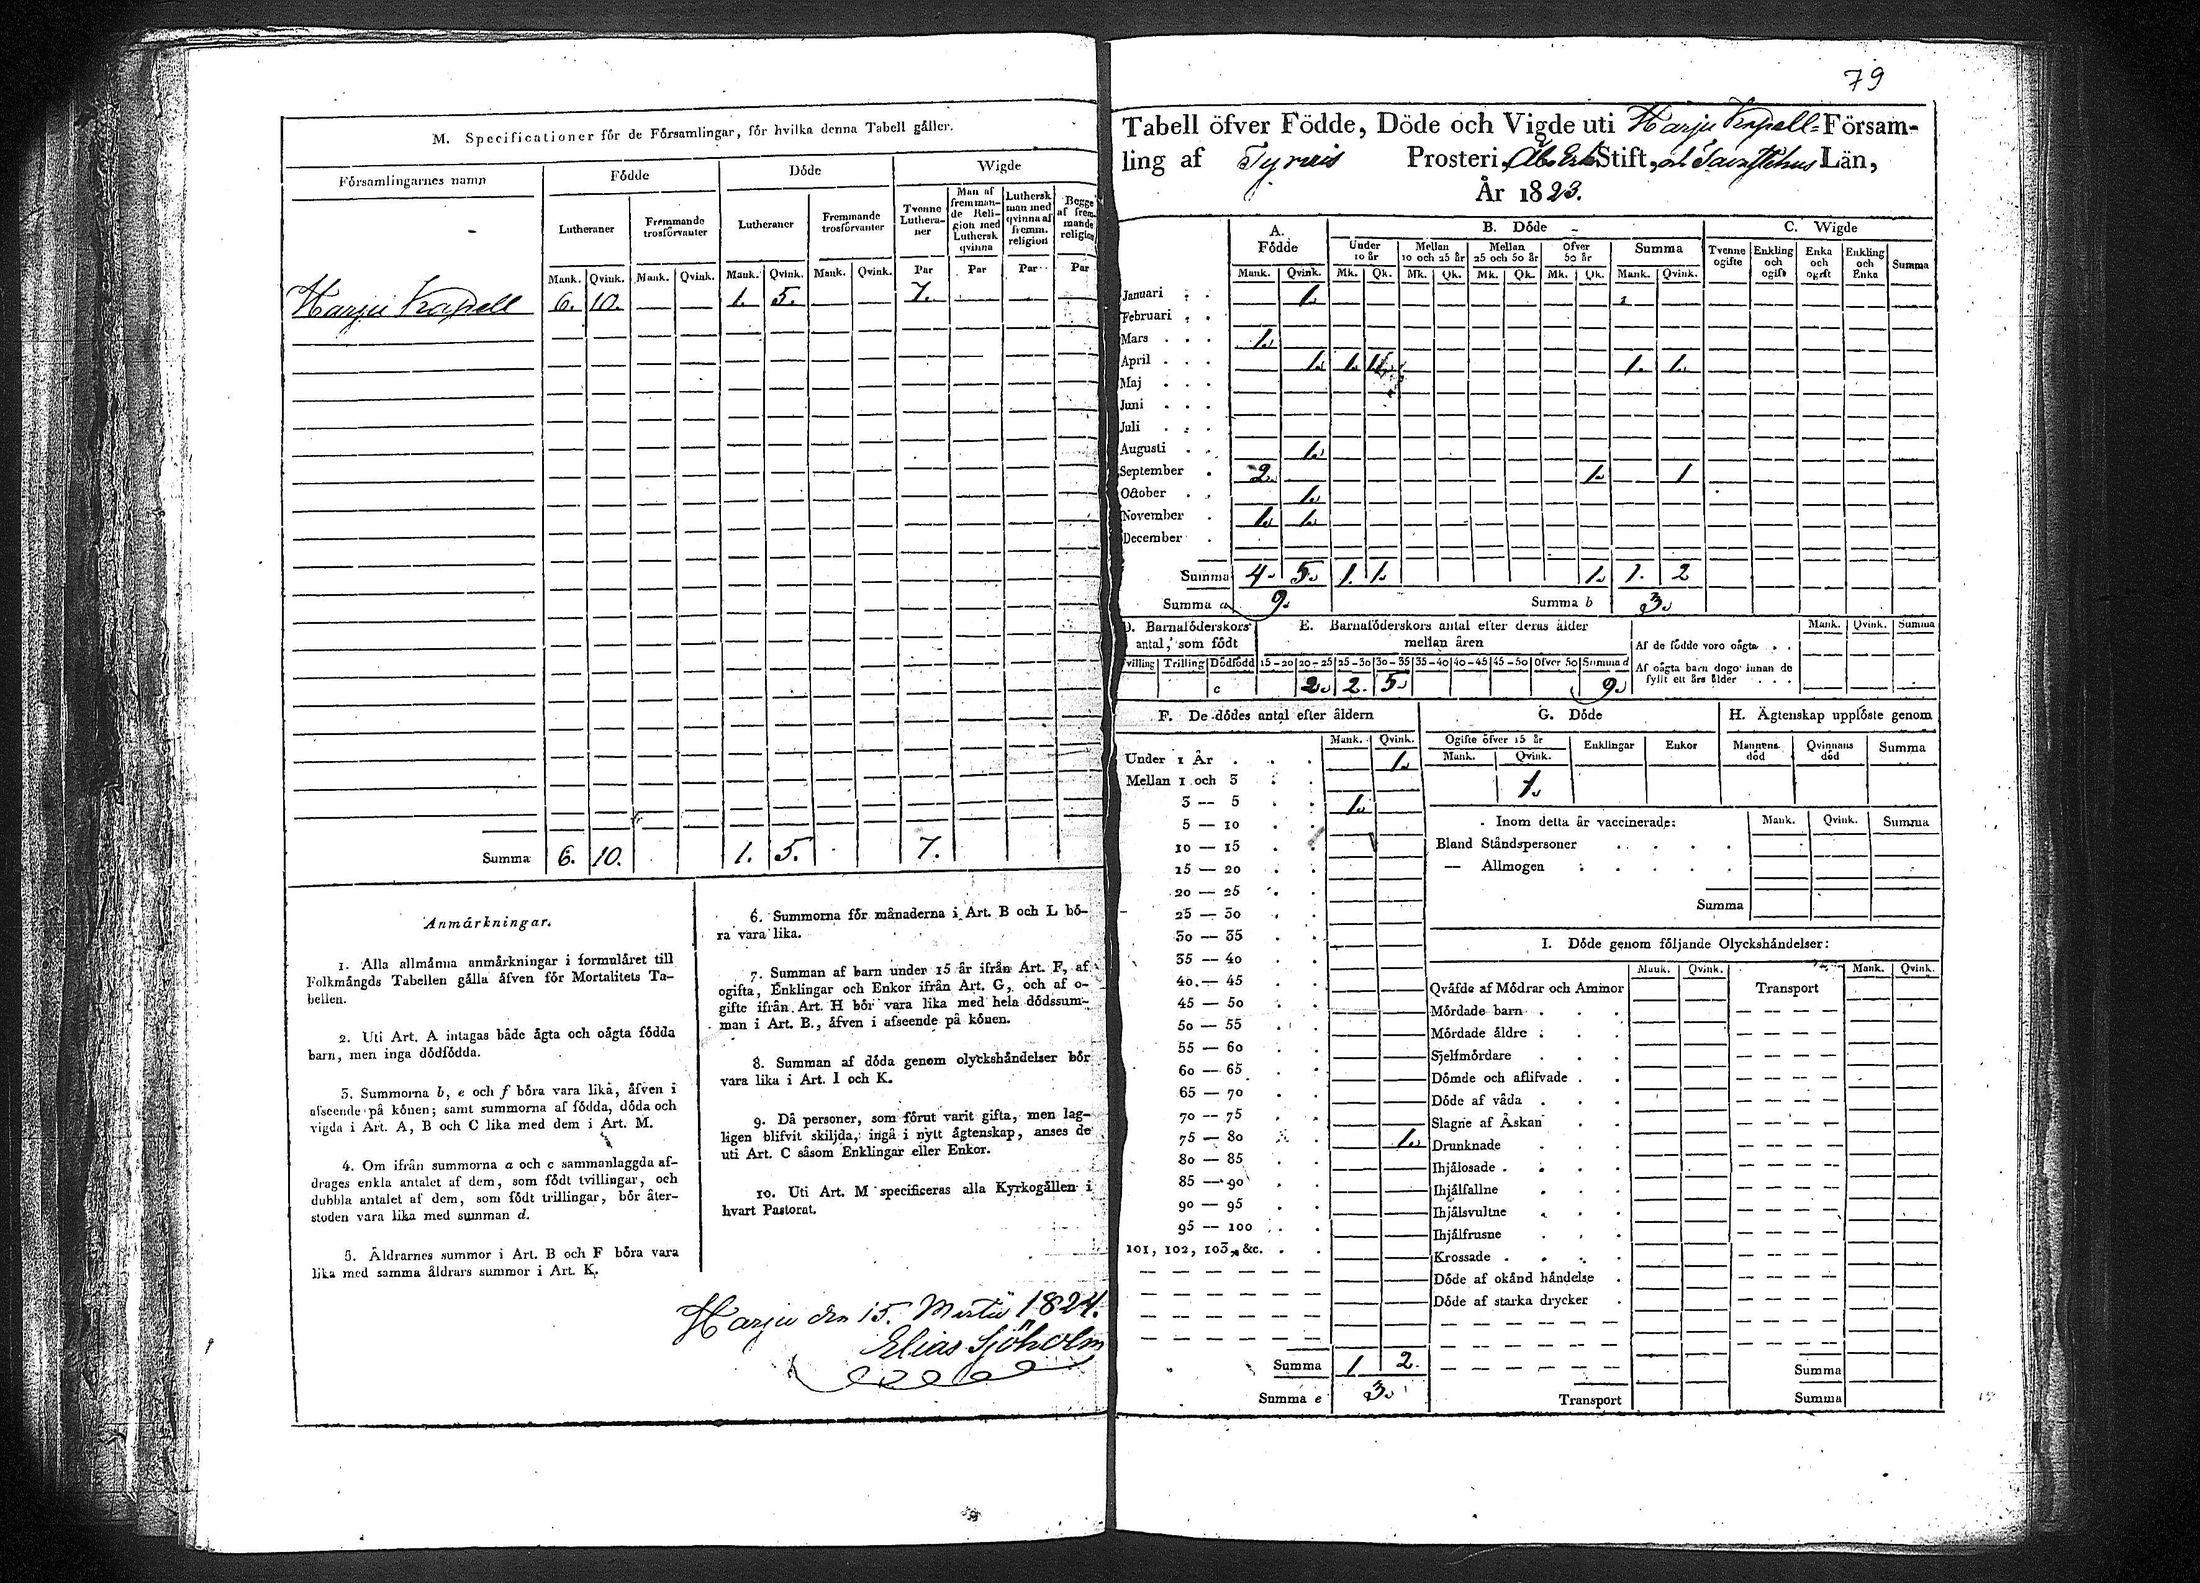 M. Specificationer för de Församlingar, för hvilka denna Tabell gäller.
Församlingarnes namn
Födde
Döde
Wigde
Lutheraner
Fremmande trosförvanter
Lutheraner
Fremmande trosförvanter
Tvenne Lutheraner
Man af fremmande Religion med Luthersk qvinna
Luthersk man med qvinna af fremm. religion
Begge af fremmande religion
Mank. Qvink. Mank. Qvink. Mank. Qvink. Mank. Qvink. Par Par Par Par
Harju Kapell 6. 10. 1. 5. 7.
Summa 6. 10. 1. 5. 7.
Anmärkningar.
1. Alla allmänna anmärkningar i formuläret till
Folkmängds Tabellen gälla äfven för Mortalitets Ta-
bellen.
2. Uti Art. A intagas både ägta och oägta födda
barn, men inga dödfödda.
3. Summorna b, e och f böra vara lika, äfven i
afseende på könen; samt summorna af födda, döda och
vigda i Art. A, B och C lika med dem i Art. M.
4. Om ifrån summorna a och c sammanlaggda af-
drages enkla antalet af dem, som födt tvillingar, och
dubbla antalet af dem, som födt trillingar, bör åter-
stoden vara lika med summan d.
5. Äldrarnes summor i Art. B och F böra vara
lika med samma äldrars summor i Art. K.
6. Summorna för månaderna i Art. B och L bö-
ra vara lika.
7. Summan af barn under 15 år ifrån Art. F, af
ogifta, Enklingar och Enkor ifrån Art. G, och af o-
gifte ifrån Art. H bör vara lika med hela dödssum-
man i Art. B., äfven i afseende på könen.
8. Summan af döda genom olyckshändelser bör
vara lika i Art. I och K.
9. Då personer, som förut varit gifta, men lag-
ligen blifvit skiljda, ingå i nytt ägtenskap, anses de
uti Art. C såsom Enklingar eller Enkor.
10. Uti Art. M specificeras alla Kyrkogällen i
hvart Pastorat.
Harju den 15. Martii 1824.
Elias Sjöholm
79
Tabell öfver Födde, Döde och Vigde uti Harju Kapell-Försam-
ling af Tyrvis Prosteri, Åbo Erke Stift, och Tavastehus Län,
År 1823.
A. Födde
B. Döde
C. Wigde
Under 10 år
Mellan 10 och 25 år
Mellan 25 och 50 år
Öfver 50 år
Summa
Tvenne ogifte
Enkling och ogift
Enka och ogift
Enkling och Enka
Summa
Mank. Qvink. Mk. Qk. Mk. Qk. Mk. Qk. Mk. Qk. Mank. Qvink.
Januari 1.
Februari
Mars 1.
April 1. 1. 1. 1. 1.
Maj
Juni
Juli
Augusti 1.
September 2. 1. 1
October 1.
November 1. 1.
December
Summa 4. 5. 1. 1. 1. 1. 2
Summa a 9. Summa b 3.
D. Barnaföderskors antal, som födt
E. Barnaföderskors antal efter deras ålder
mellan åren
Mank. Qvink. Summa
Af de födde voro oägta
Tvilling Trilling Dödfödd 15-20 20-25 25-30 30-35 35-40 40-45 45-50 Öfver 50 Summa d
Af oägta barn dogo innan de
fyllt ett års ålder
c 2. 2. 5. 9.
F. De dödes antal efter åldern
G. Döde
H. Ägtenskap upplöste genom
Mank. Qvink.
Ogifte öfver 15 år
Mank. Qvink.
Enklingar
Enkor
Mannens död
Qvinnans död
Summa
1.
Under 1 År 1.
Mellan 1 och 3
3 — 5 1.
5 — 10
10 — 15
15 — 20
20 — 25
25 — 30
30 — 35
35 — 40
40 — 45
45 — 50
50 — 55
55 — 60
60 — 65
65 — 70
70 — 75
75 — 80 1.
80 — 85
85 — 90
90 — 95
95 — 100
101, 102, 103, &c.
Summa 1 2.
Summa e 3.
Inom detta år vaccinerade: Mank. Qvink. Summa
Bland Ståndspersoner
— Allmogen
Summa
I. Döde genom följande Olyckshändelser:
Mank. Qvink. Mank. Qvink.
Qväfde af Mödrar och Ammor Transport
Mördade barn
Mördade äldre
Sjelfmördare
Dömde och aflifvade
Döde af våda
Slagne af Åskan
Drunknade
Ihjälosade
Ihjälfallne
Ihjälsvultne
Ihjälfrusne
Krossade
Döde af okänd händelse
Döde af starka drycker
Summa
Transport Summa